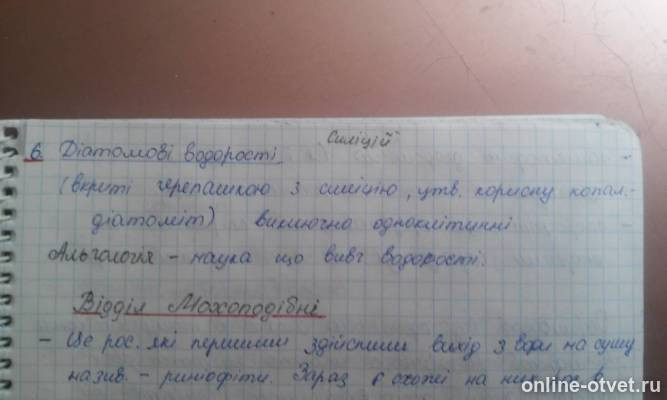 силіцій
6. Діатомові водорості
(вкриті черепашкою з силіцію, утв. корисну копал.-
діатоміт) виключно одноклітинні
Альгологія - наука що вивч. водорості.
Відділ Мохоподібні
- Це рос. які першими здійснили вихід з води на сушу
назив. - риніофіти. Зараз є схожі на них
online-otvet.ru